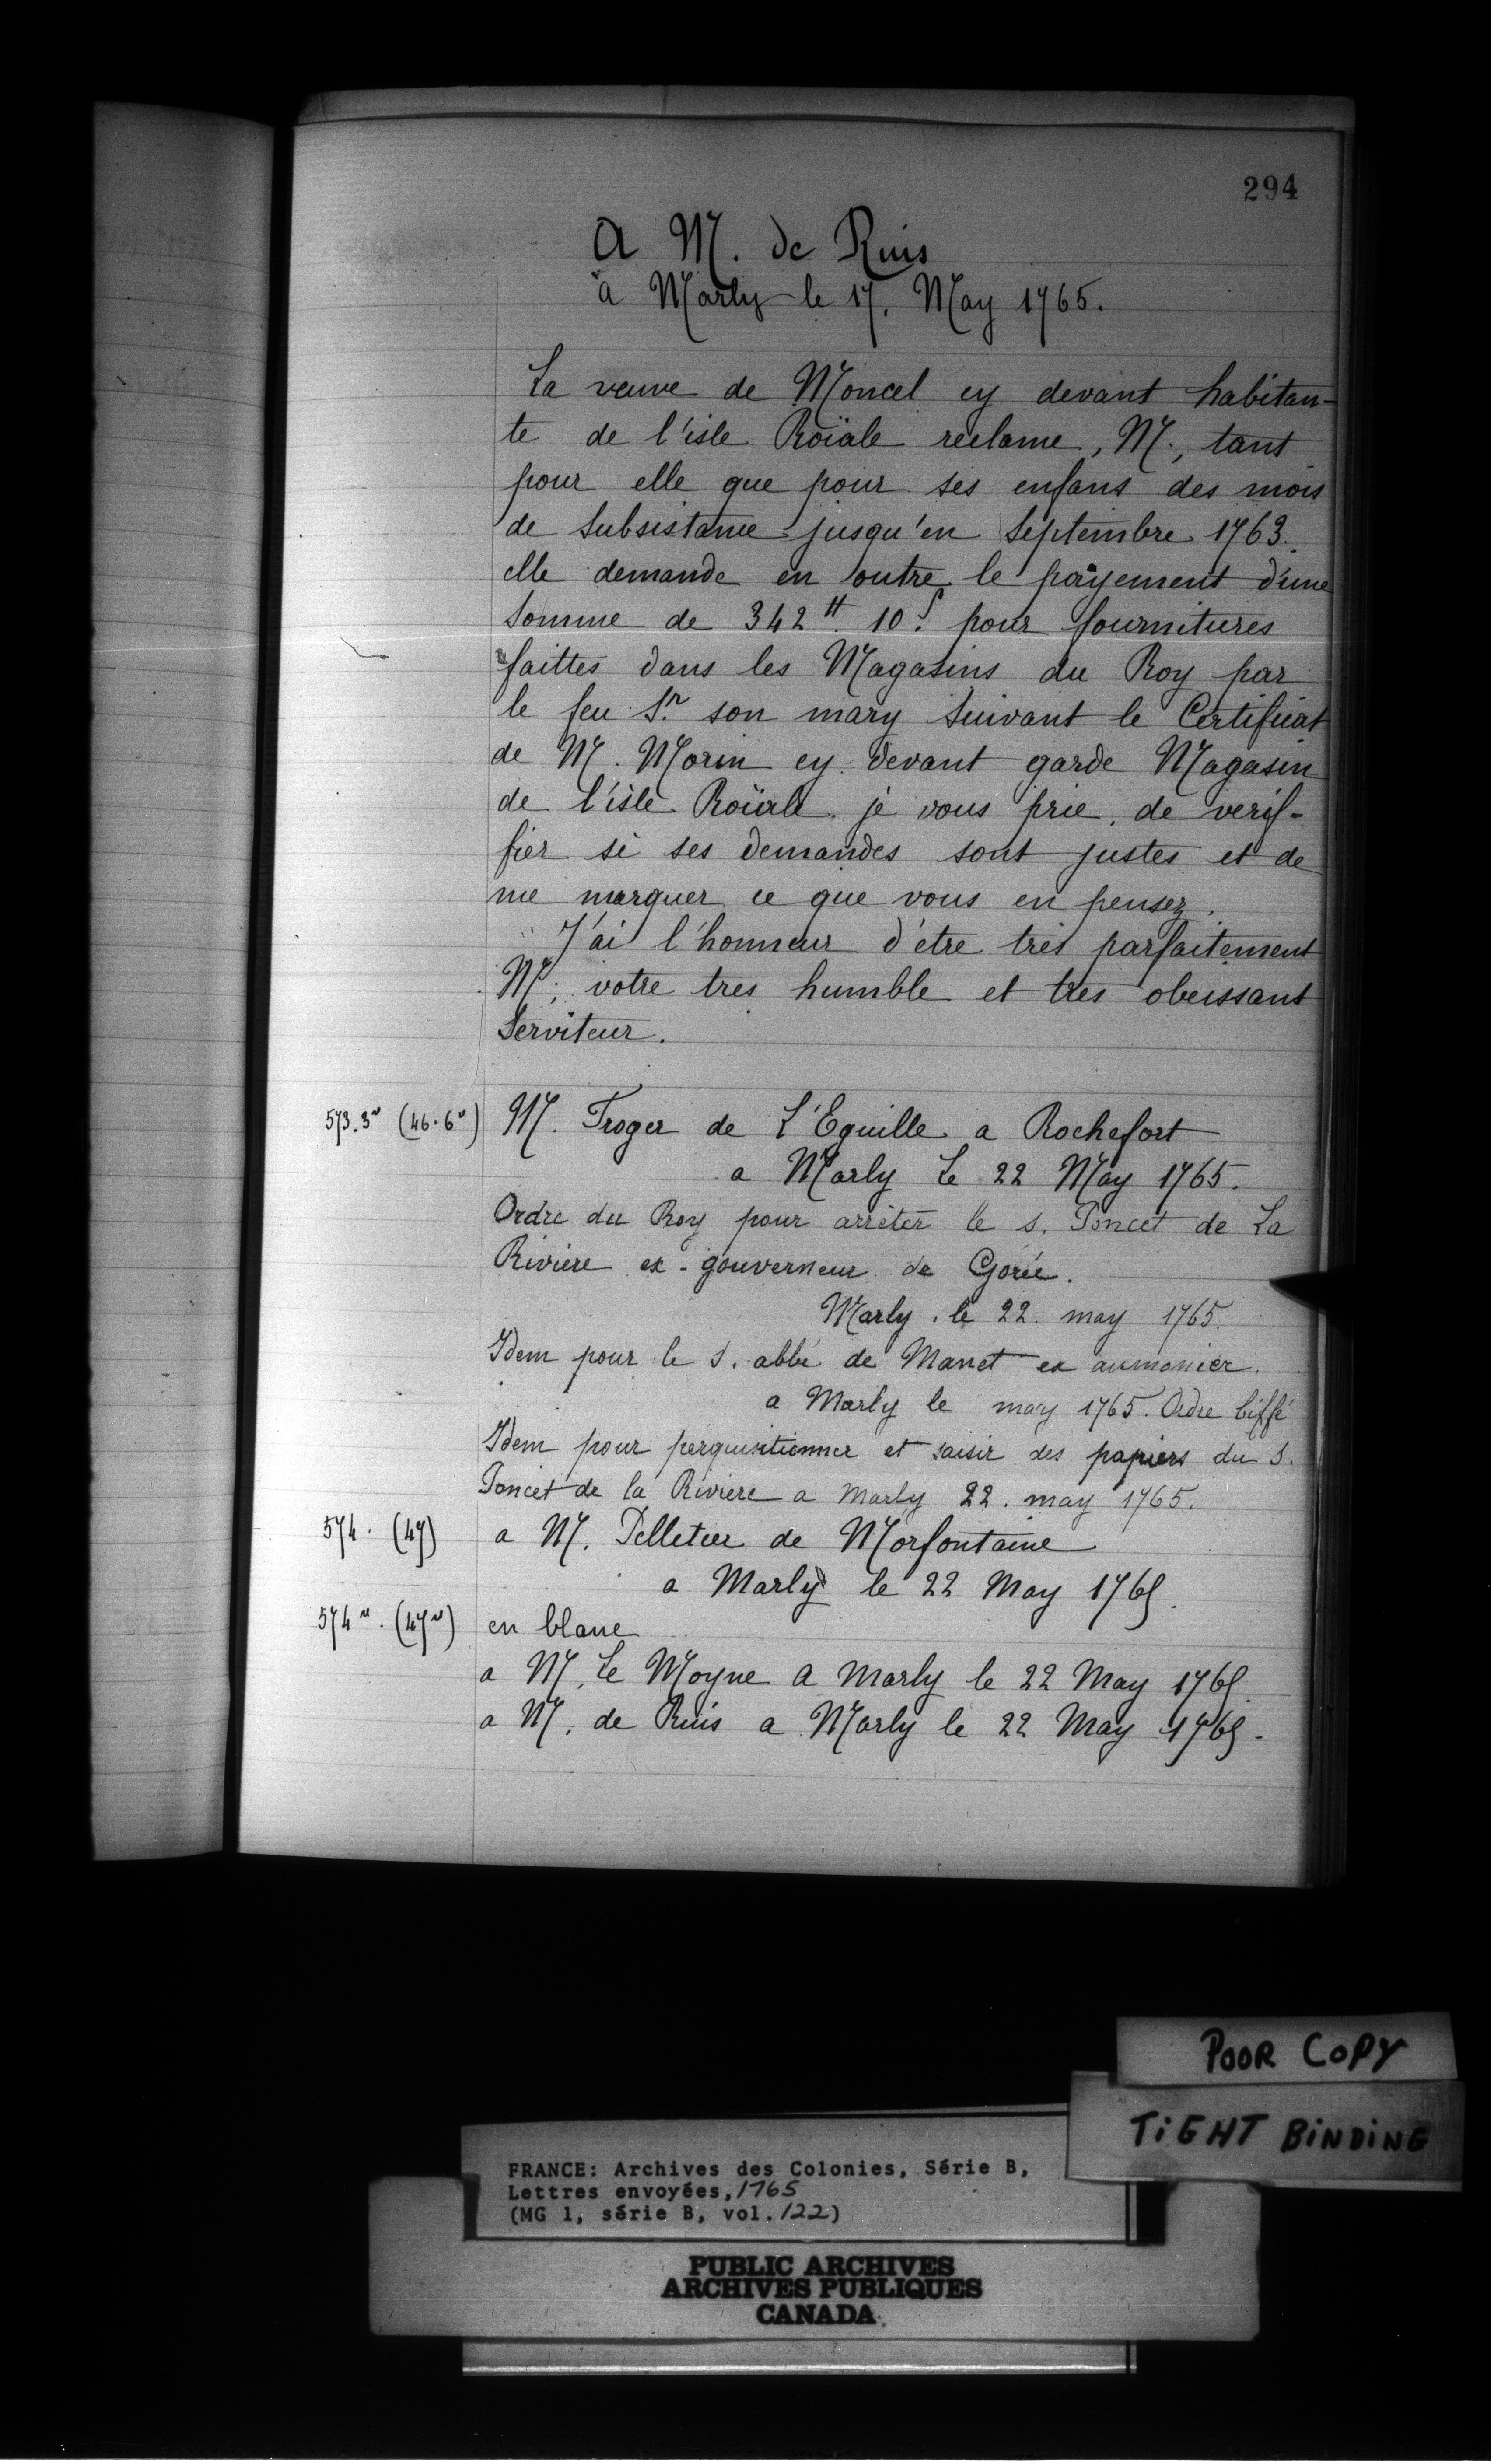 294
A M. de Ruis
à Marly le 17. May 1765.
La veuve de Moncel cy devant habitan-
te de l'isle Roïale reclame, M., tant
pour elle que pour ses enfans des mois
de subsistance jusqu'en Septembre 1763.
elle demande en outre le payement d'une
somme de 342 ₶ 10 s. pour fournitures
faittes dans les Magasins du Roy par
le feu Sr. son mary suivant le Certificat
de M. Morin cy devant garde Magasin
de l'isle Roïale. je vous prie, de verif-
fier si ses demandes sont justes et de
me marquer ce que vous en pensez.
J'ai l'honneur d'être très parfaitement
M., votre tres humble et tres obeissant
Serviteur.
573.3v (46.6v) M. Froger de L'Eguille a Rochefort
a Marly Le 22 May 1765.
Ordre du Roy pour arrêter le s. Poncet de La
Rivière ex-gouverneur de Gorée.
Marly. le 22. may 1765.
Idem pour le S. abbé de Manet ex aumonier.
a Marly le may 1765. Ordre biffé
Idem pour perquisitionner et saisir des papiers du S.
Poncet de la Rivière a Marly 22. may 1765.
574. (47) a M. Pelletier de Morfontaine
a Marly le 22 May 1765.
574v. (47v) en blanc
a M. Le Moyne a Marly le 22 May 1765.
a M. de Ruis a Marly le 22 May 1765.
POOR COPY
TiGHT BiNDiNG
FRANCE: Archives des Colonies, Série B,
Lettres envoyées, 1765
(MG 1, série B, vol. 122)
PUBLIC ARCHIVES
ARCHIVES PUBLIQUES
CANADA